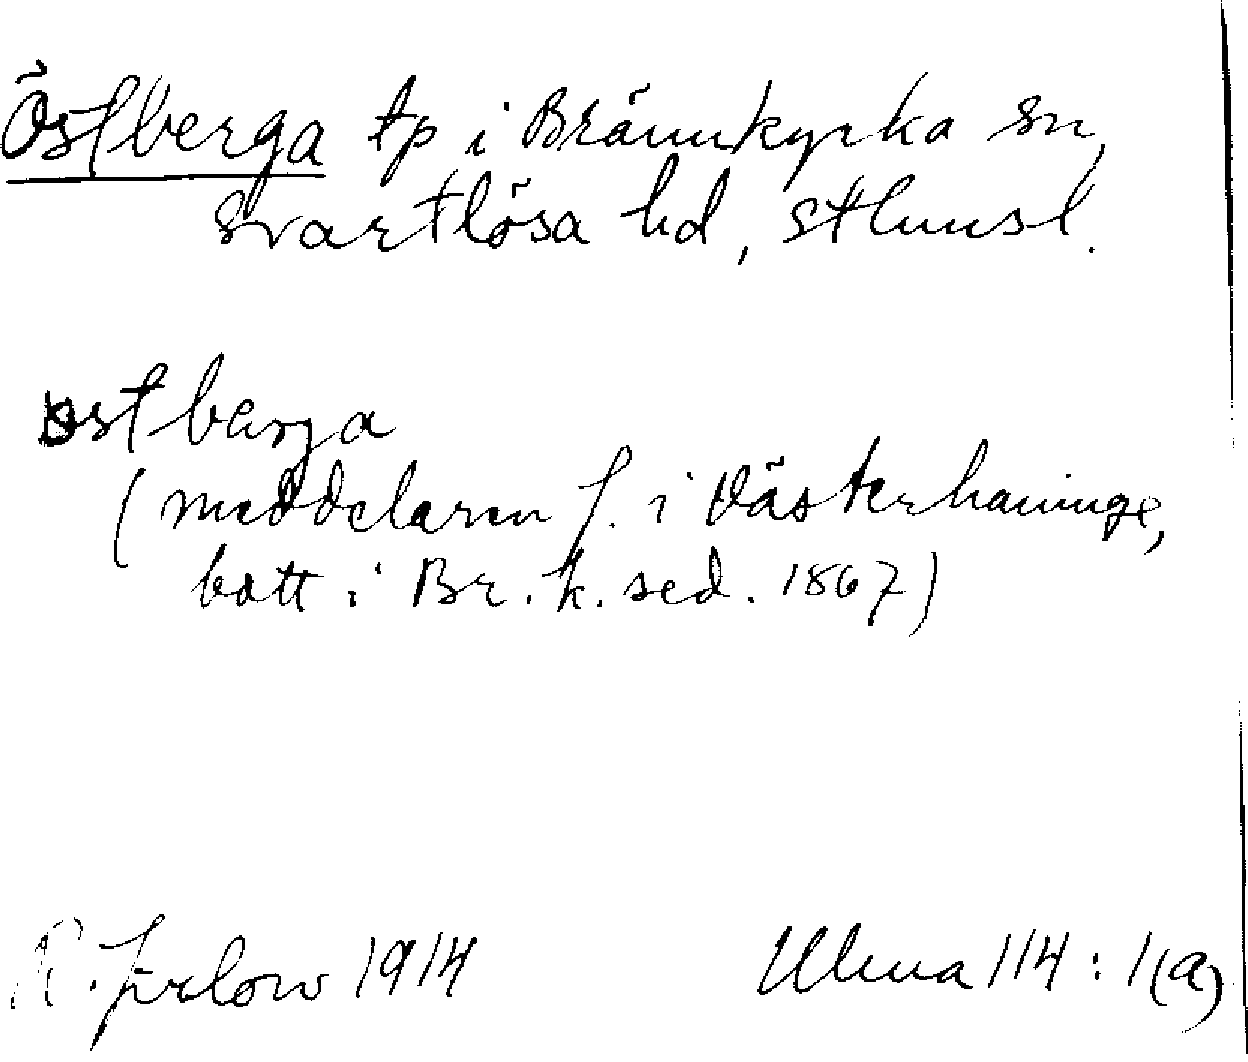 Östberga tp i Brännkyrka sn,
Svartlösa hd, Sthmsl.
östberga
(meddelaren f. i Västerhaninge,
bott i Br.k. sed. 1867)
R. Jirlow 1914
Ulma 114:1(a)